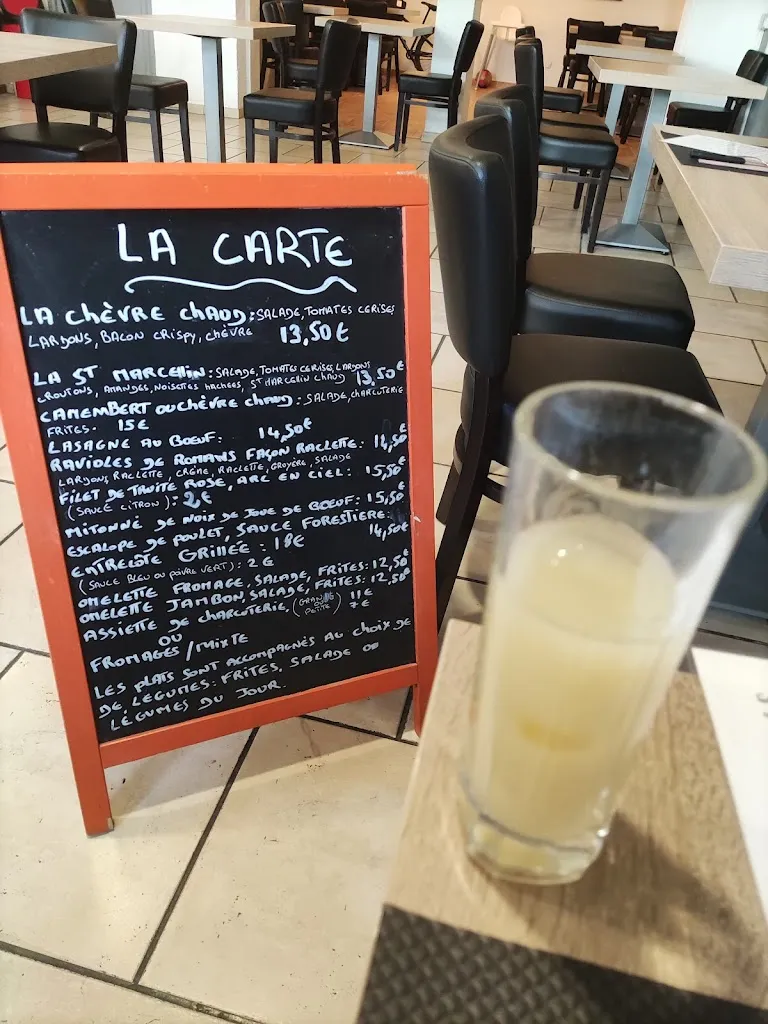 LA CARTE
LA CHÈVRE CHAUD: SALADE, TOMATES CERISES
LARDONS, BACON CRISPY, CHÈVRE 13,50€
LA ST MARCELLIN: SALADE, TOMATES CERISES, LARDONS
CROUTONS, AMANDES, NOISETTES HACHEES, ST MARCELLIN CHAUD 13,50€
CAMEMBERT OU CHÈVRE CHAUD: SALADE, CHARCUTERIE
FRITES. 15€
LASAGNE AU BŒUF: 14,50€
RAVIOLES DE ROMANS FAÇON RACLETTE: 14,50€
LARDONS, RACLETTE, CRÈME, RACLETTE, GRUYÈRE, SALADE
FILET DE TRUITE ROSE, ARC EN CIEL: 15,50€
(SAUCE CITRON): 2€
MITONNÉ DE NOIX DE JOUE DE BŒUF: 15,50€
ESCALOPE DE POULET, SAUCE FORESTIERE: 14,50€
ENTRECÔTE GRILLÉE: 18€
(SAUCE BLEU OU POIVRE VERT): 2€
OMELETTE FROMAGE, SALADE, FRITES: 12,50€
OMELETTE JAMBON, SALADE, FRITES: 12,50€
ASSIETTE DE CHARCUTERIE, (GRANDE OU PETITE) 11€ 7€
OU
FROMAGES/MIXTE
LES PLATS SONT ACCOMPAGNÉS AU CHOIX DE
DE LÉGUMES: FRITES, SALADE OU
LÉGUMES DU JOUR.